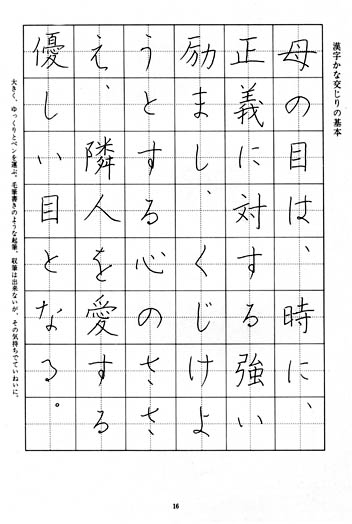 漢字かな交じりの基本
母の目は、時に、
正義に対する強い
励まし、くじけよ
うとする心のささ
え、隣人を愛する
優しい目となる。
大きく、ゆっくりとペンを運ぶ。毛筆書きのような起筆、収筆は出来ないが、その気持ちでていねいに。
16